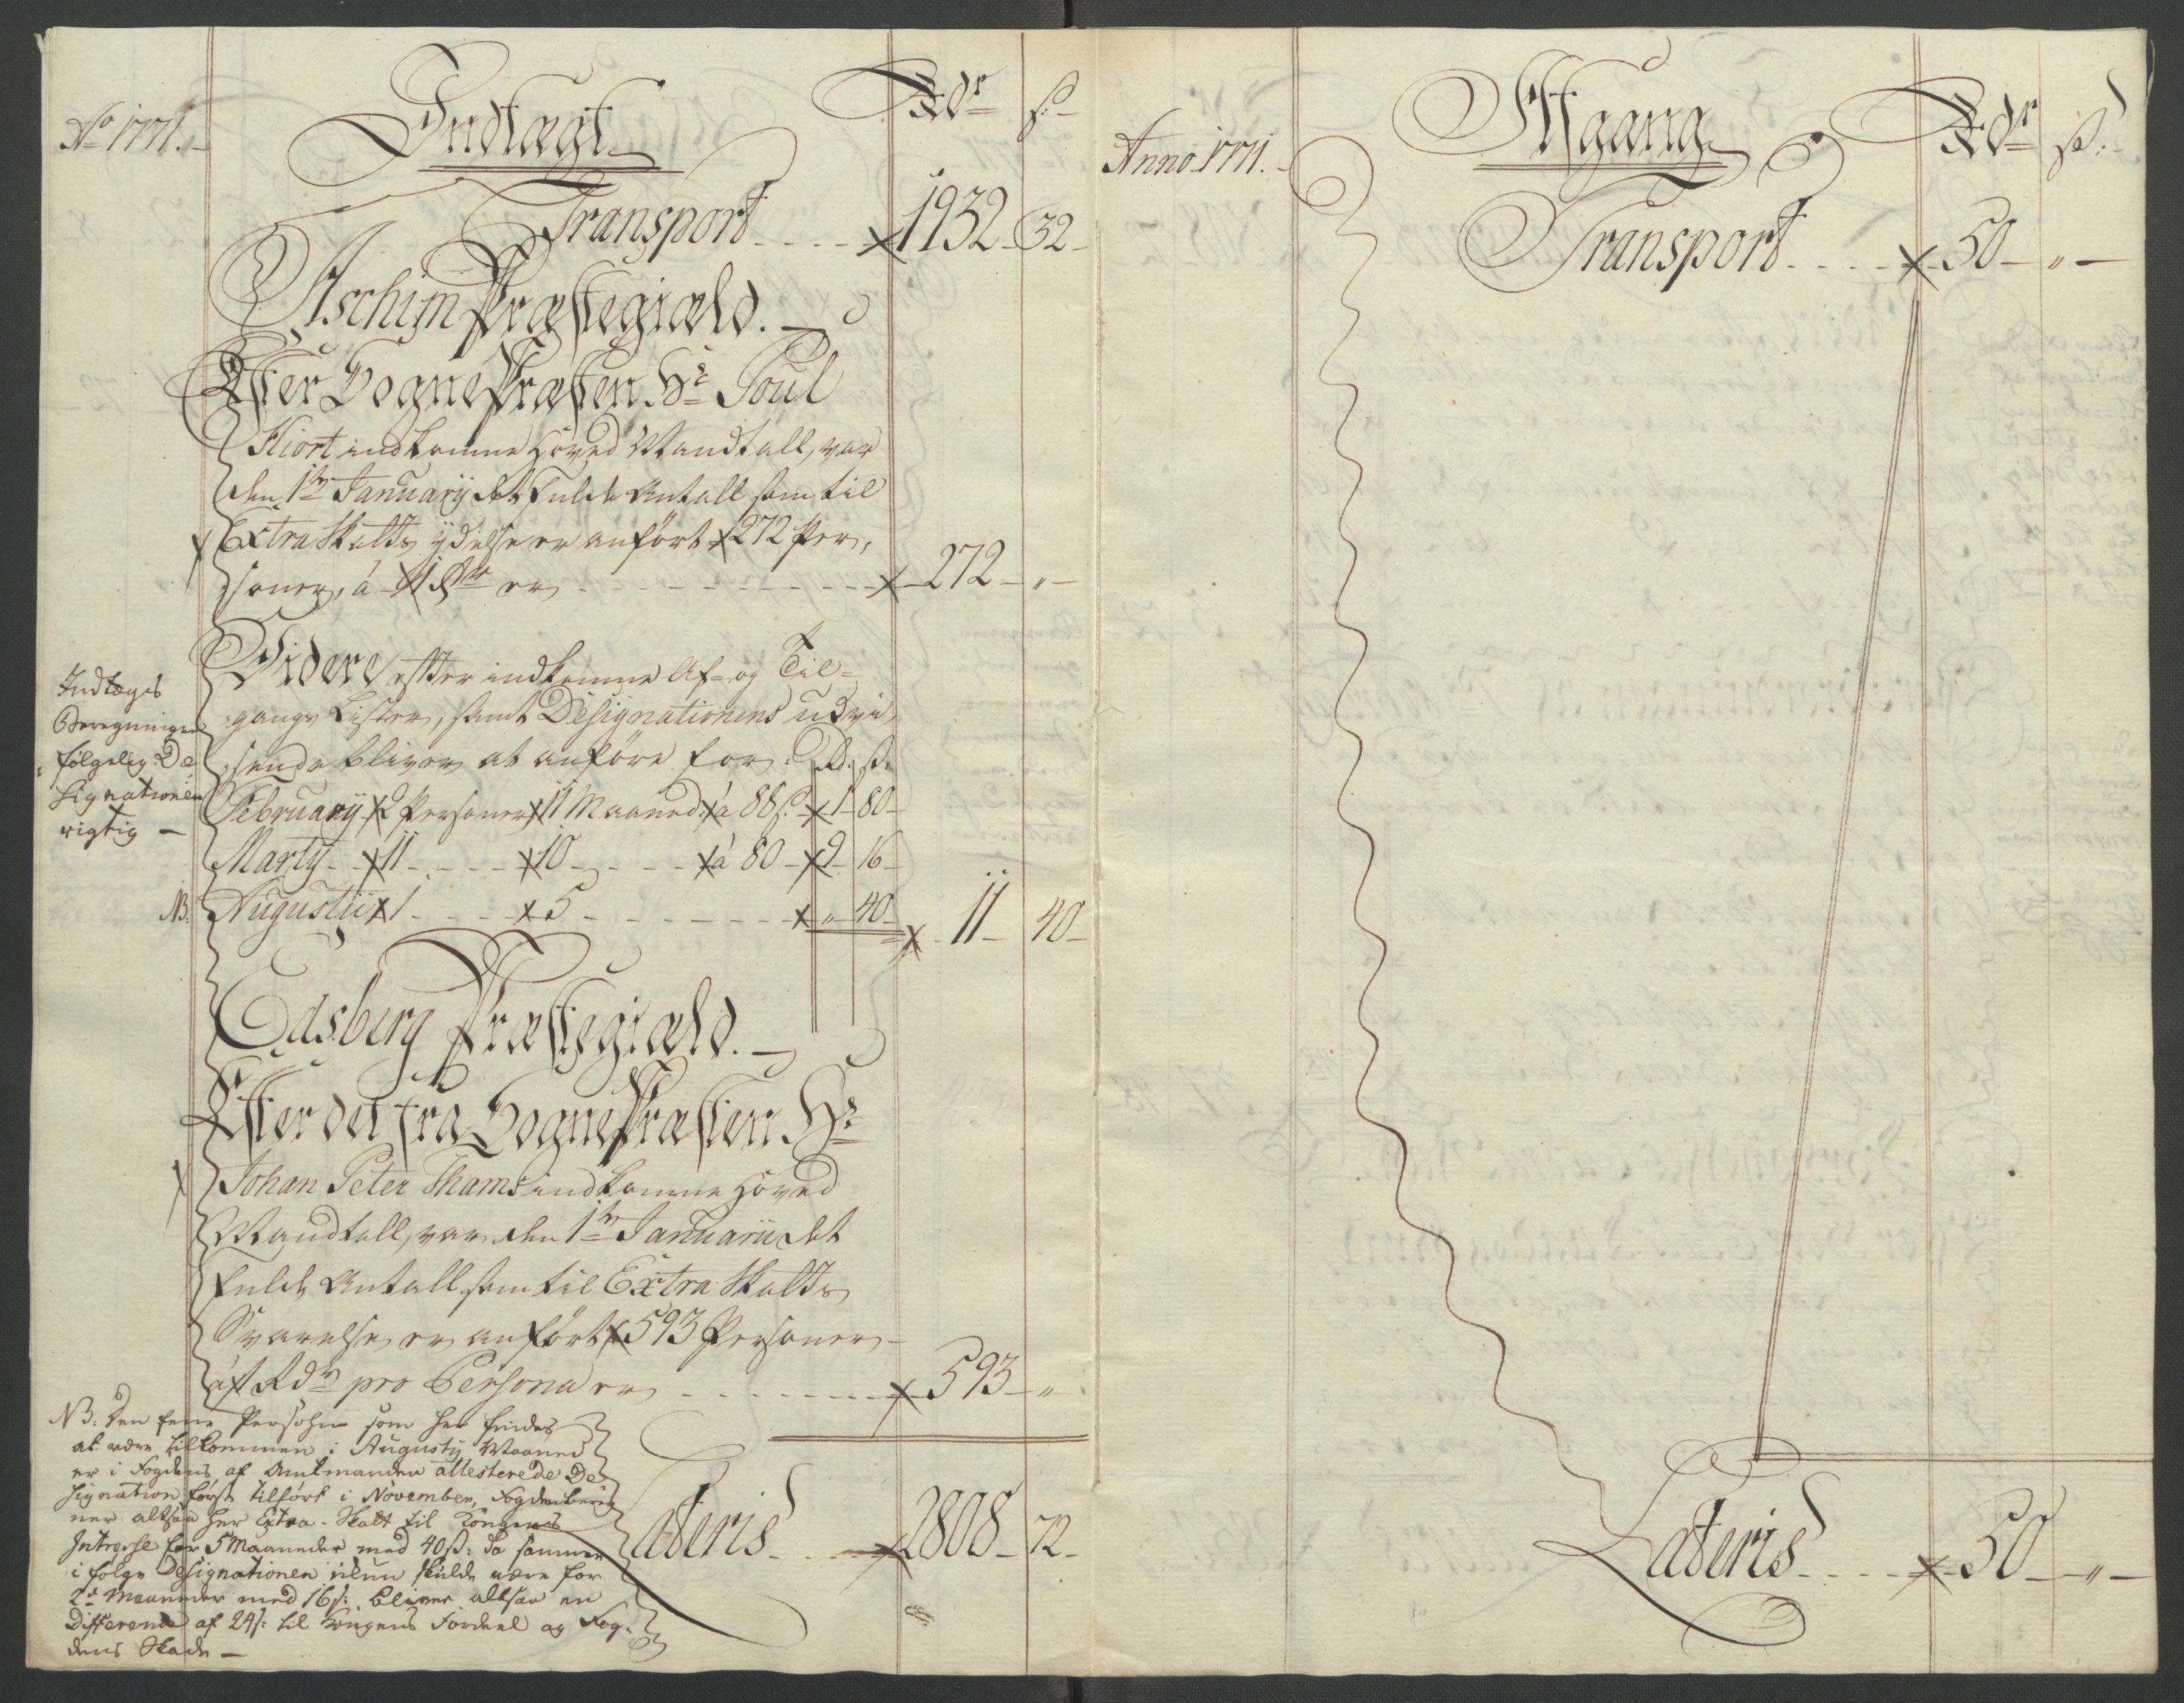 Ao 1771.
Indtægt
Rdr
ß
Transport
1932
32
Aschim Præstegiæld.
Efter Sogne Præsten Hr Poul
Hiort indkomne Hoved Mandtall, var
den 1te Januarij det fulde Antall som til
Extra Skatts ydelse er anført 272 Per-
soner, à 1 Rdr er
272
"
Videre efter indkomne Af- og Til-
gangs Lister, samt Designationens udvi-
sende bliver at anføre for.
Rd. ß.
Februarij 2 Personer 11 Maaned. à 88 ß. 1 80
Martij 11 10 à 80 9 16
NB. Augustii 1 5 " 40
11
40
Indtægts
Beregningen
følgelig De-
signationen
rigtig
Edsberg Præstegiæld.
Efter det fra Sogne Præsten Hr
Johan Peter Thams indkomne Hoved
Mandtall, var den 1te Januarii det
fulde Antall som til Extra Skatts
Svarelse er anført 593 Personer
à 1 Rdr pro Persona er
593
"
NB: Den eene Persohn som her findes
at være tilkommen i Augustij Maaned
er i Fogdens af Amtmanden attesterede De-
signation først tilført i November, Fogden bereg-
ner altsaa her Extra-Skatt til Kongens
Intresse for 5 Maaneder med 40 ß: da samme
i følge Designationen ikkun skulde være for
2de Maaneder med 16 ß: bliver altsaa en
Difference af 24 ß: til Kongens Fordeel og Fog-
dens Skade
Lateris
2808
72
Anno 1771.
Afgang
Rdr
ß.
Transport
50
"
Lateris
50
"